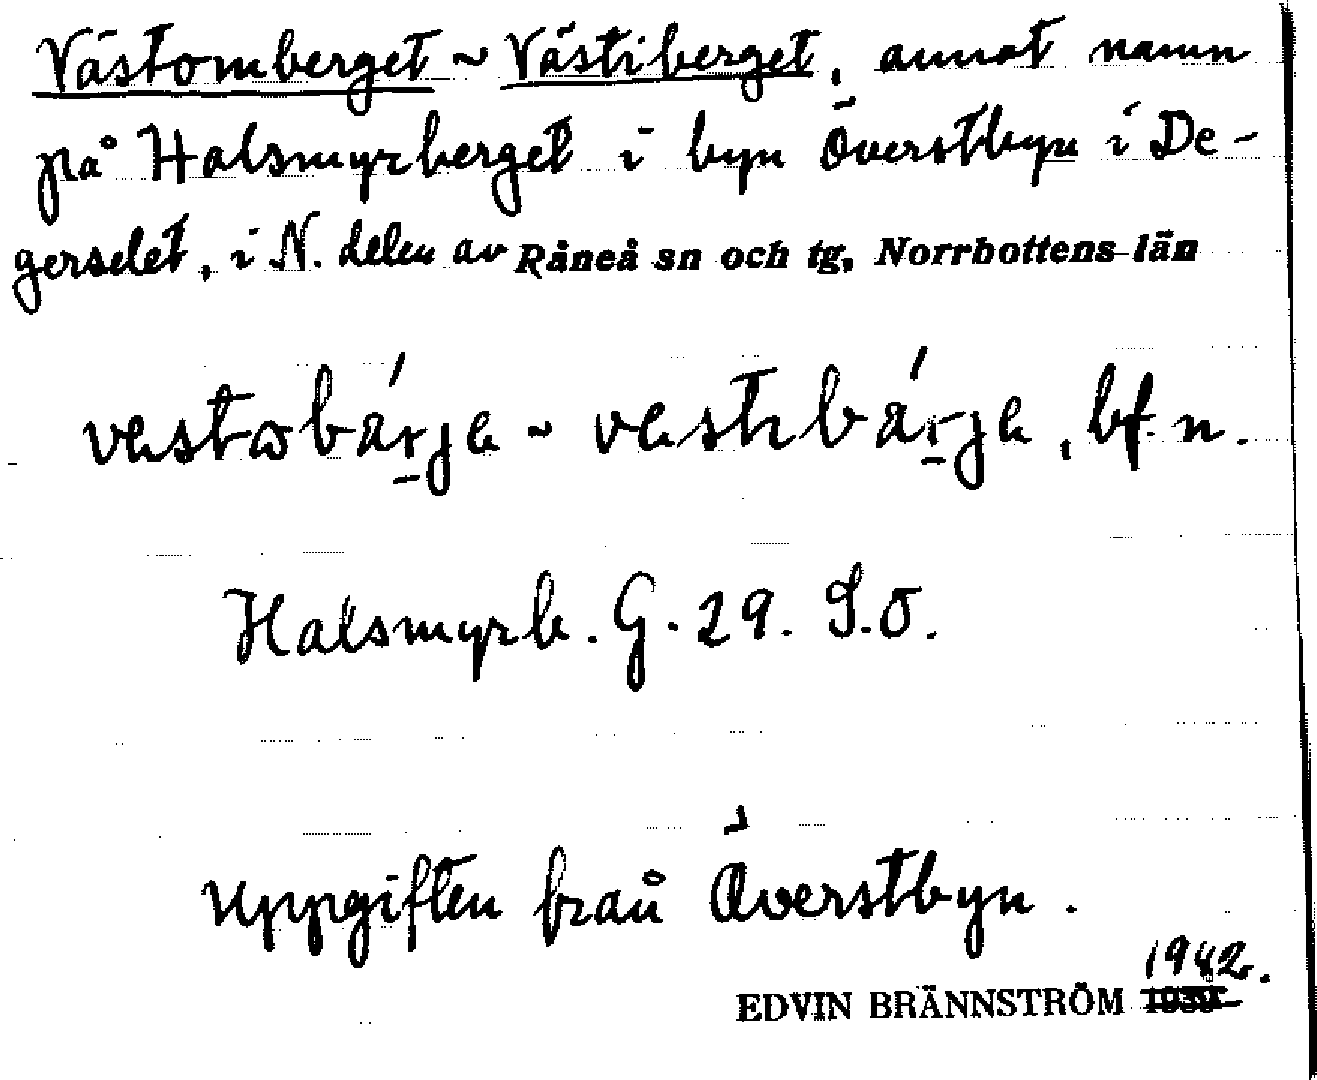 Västomberget ~ Västiberget, annat namn
på Halsmyrberget i byn Överstbyn i De-
gerselet, i N. delen av Råneå sn och tg, Norrbottens län
vestɷbárja ~ vestɩbárja, bf. n.
Halsmyrb. G. 29. S.O.
Uppgiften från Överstbyn.
1942.
EDVIN BRÄNNSTRÖM 1939